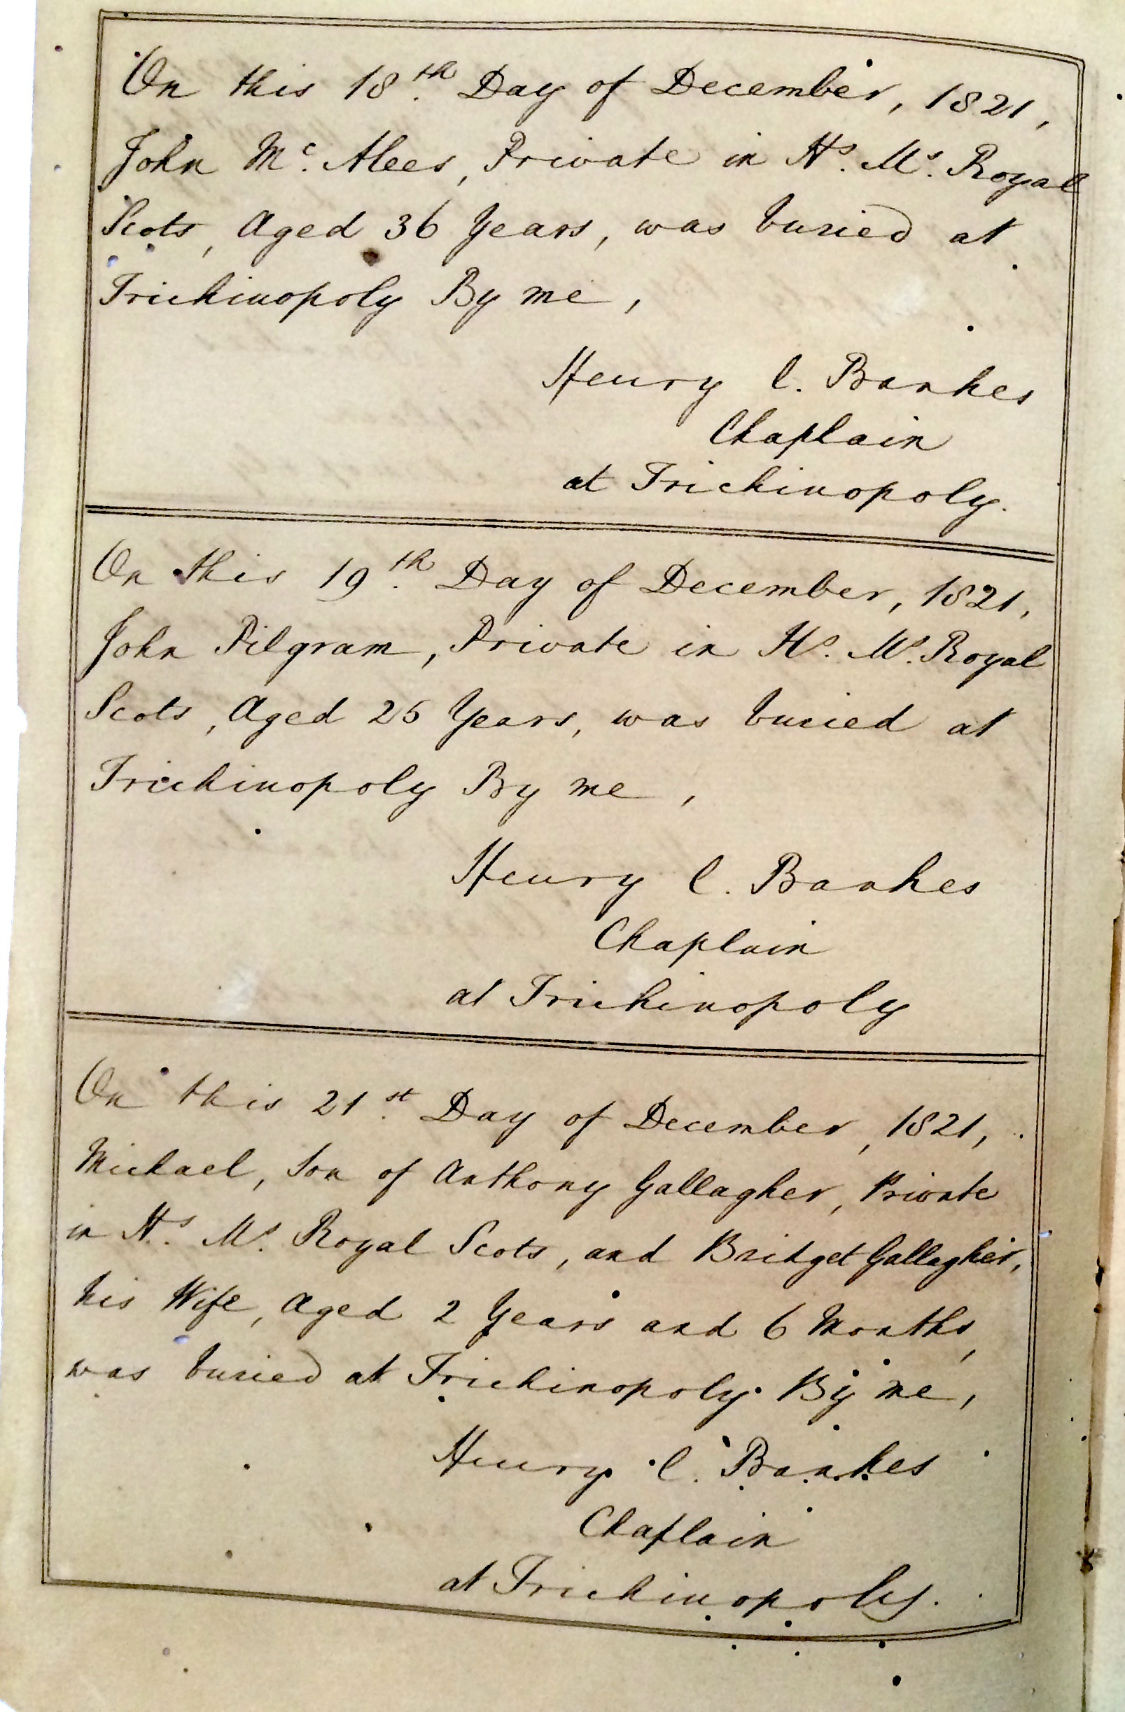 On this 18th. Day of December, 1821,
John Mc. Alees, Private in Hs. Ms. Royal
Scots, Aged 36 Years, was buried at
Trichinopoly By me,
Henry C. Bankes
Chaplain
at Trichinopoly.
On this 19th. Day of December, 1821,
John Pilgram, Private in Hs. Ms. Royal
Scots, Aged 25 Years, was buried at
Trichinopoly By me,
Henry C. Bankes
Chaplain
at Trichinopoly
On this 21st. Day of December, 1821,
Michael, Son of Anthony Gallagher, Private
in Hs. Ms. Royal Scots, and Bridget Gallagher,
his Wife, Aged 2 Years and 6 Months,
was buried at Trichinopoly. By me,
Henry C. Bankes
Chaplain
at Trichinopoly.